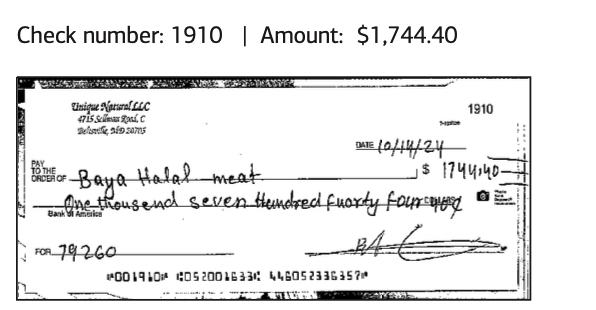 Check number: 1910 | Amount: $1,744.40
Unique Natural LLC
4715 Sellman Road, C
Beltsville, MD 20705
1910
DATE 10/14/24
PAY
TO THE
ORDER OF Baya Halal meat $ 1744.40
One thousend seven Hundred fuorty four 40¢ DOLLARS
Bank of America
FOR 79260
⑈001910⑈ ⑆052001633⑆ 446052336357⑈